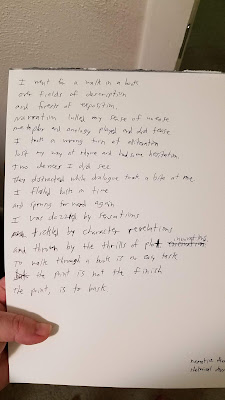 I went for a walk in a book
over fields of description
and forests of exposition
narration lulled my sense of unease
metaphor and analogy played and did tease
I took a wrong turn at alliteration
lost my way at rhyme and had some hesitation
Two themes I did see
Then distracted while dialogue took a bite at me
I flashed back in time
and sprang forward again
I was dazzled by
tickled by character revelations
and thrown by the thrills of plot
To walk through a book is no easy task
the point is not the finish
the point, is to bask